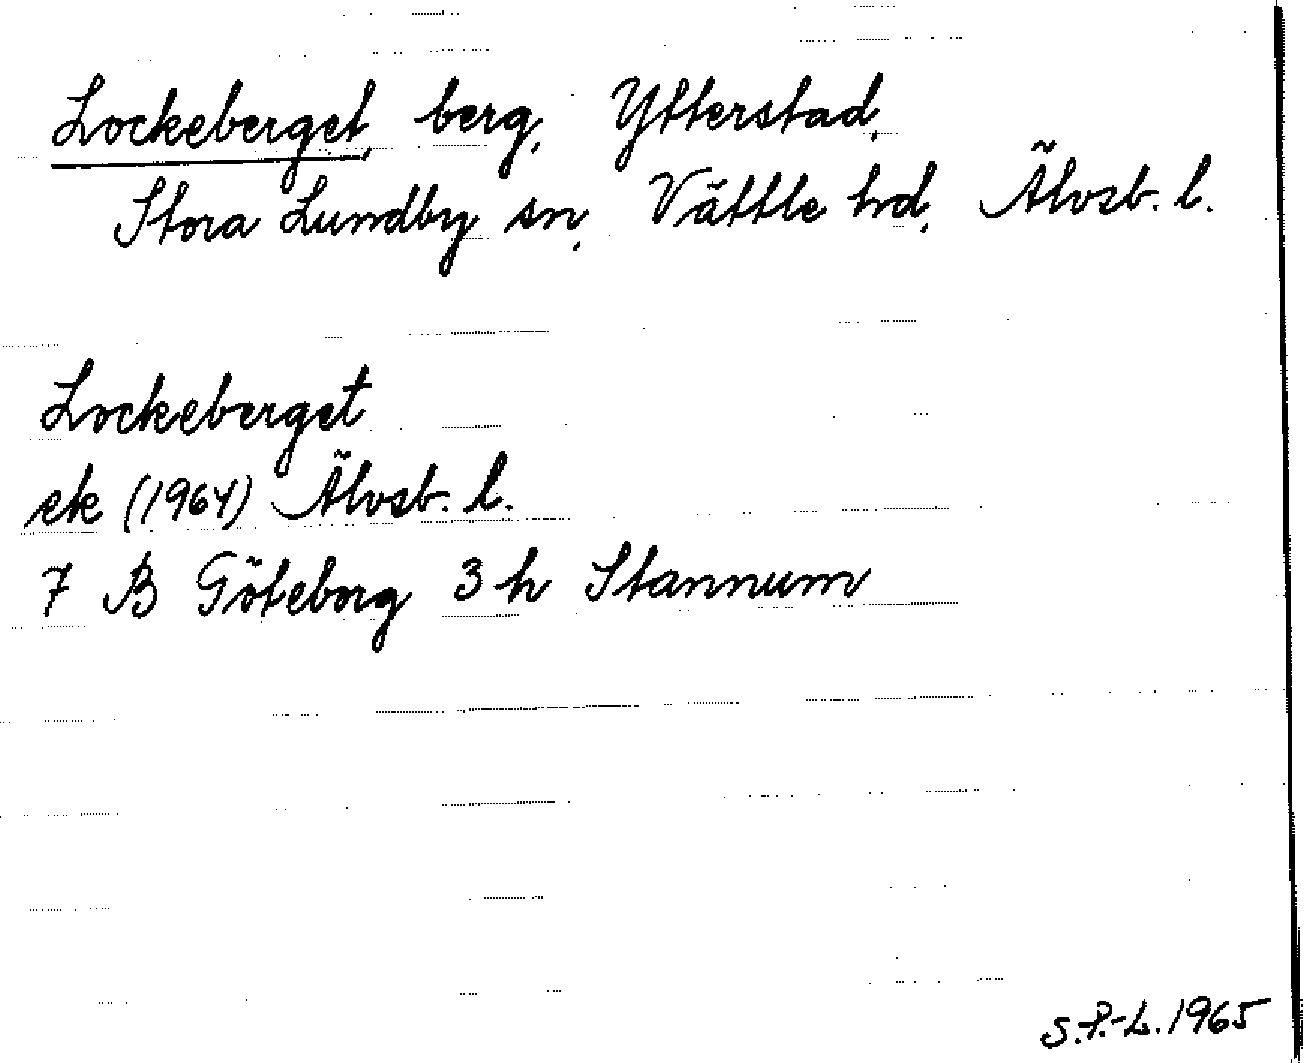 Lockeberget, berg, Ytterstad,
Stora Lundby sn, Vättle hd, Älvsb. l.
Lockeberget
ek (1964) Älvsb. l.
7 B Göteborg 3 h Stannum
S.P.-L. 1965